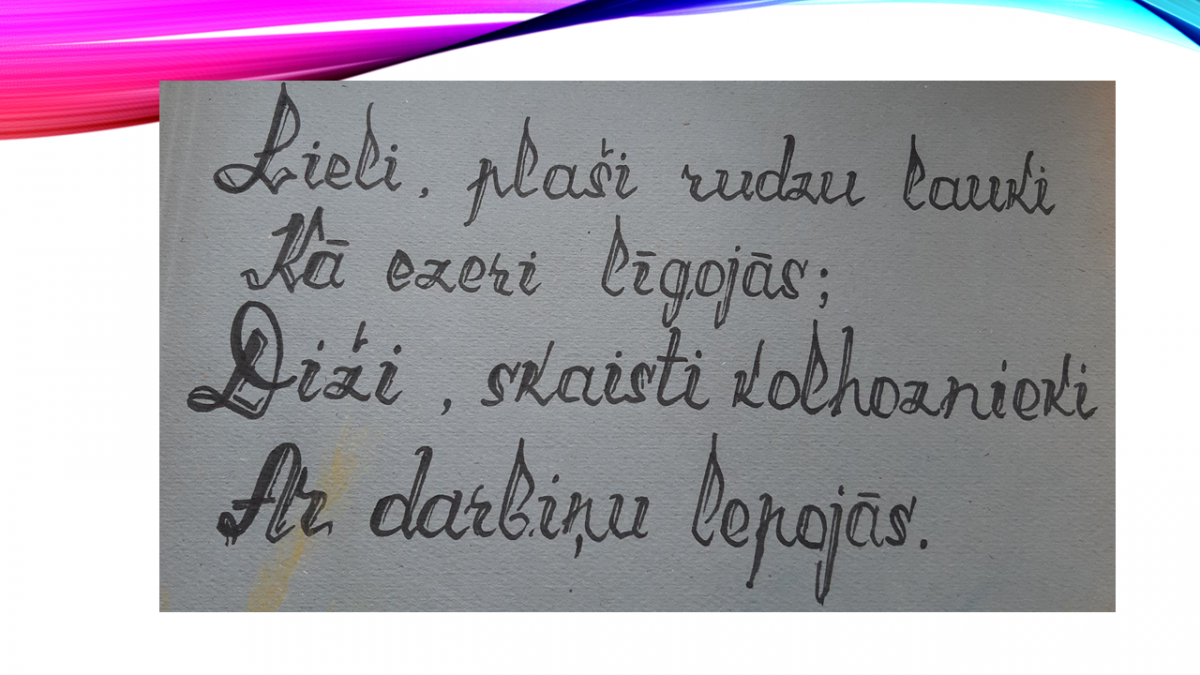 Lieli, plaši rudzu lauki
Kā ezeri līgojās;
Diži, skaisti kolhoznieki
Ar darbiņu lepojās.